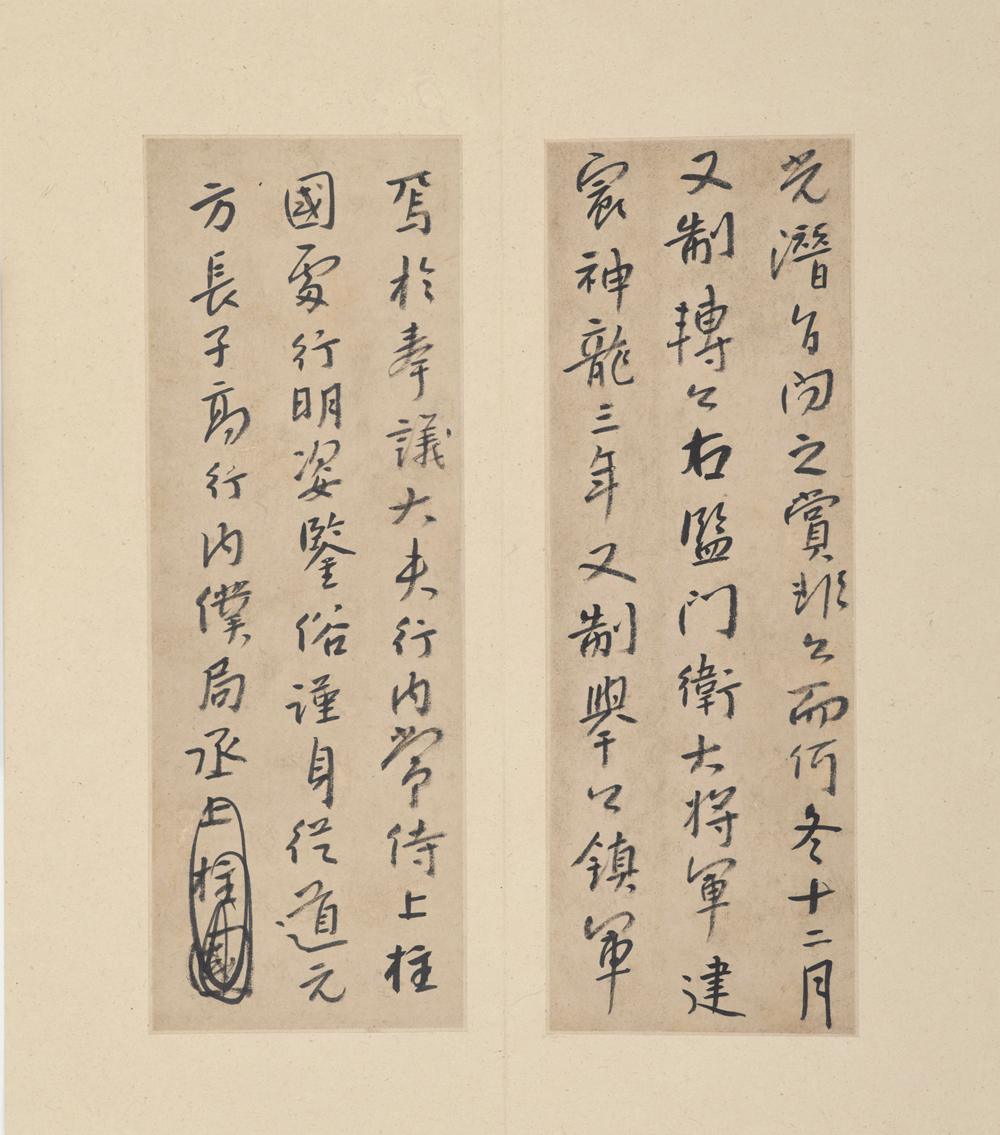 光潛旨問之賞非公而何冬十二月
又制轉公右監門衛大將軍建
宸神龍三年又制舉公鎮軍
焉於奉議大夫行内常侍上柱
國處行明姿鑒俗謹身從道元
方長子高行内僕局丞上柱國